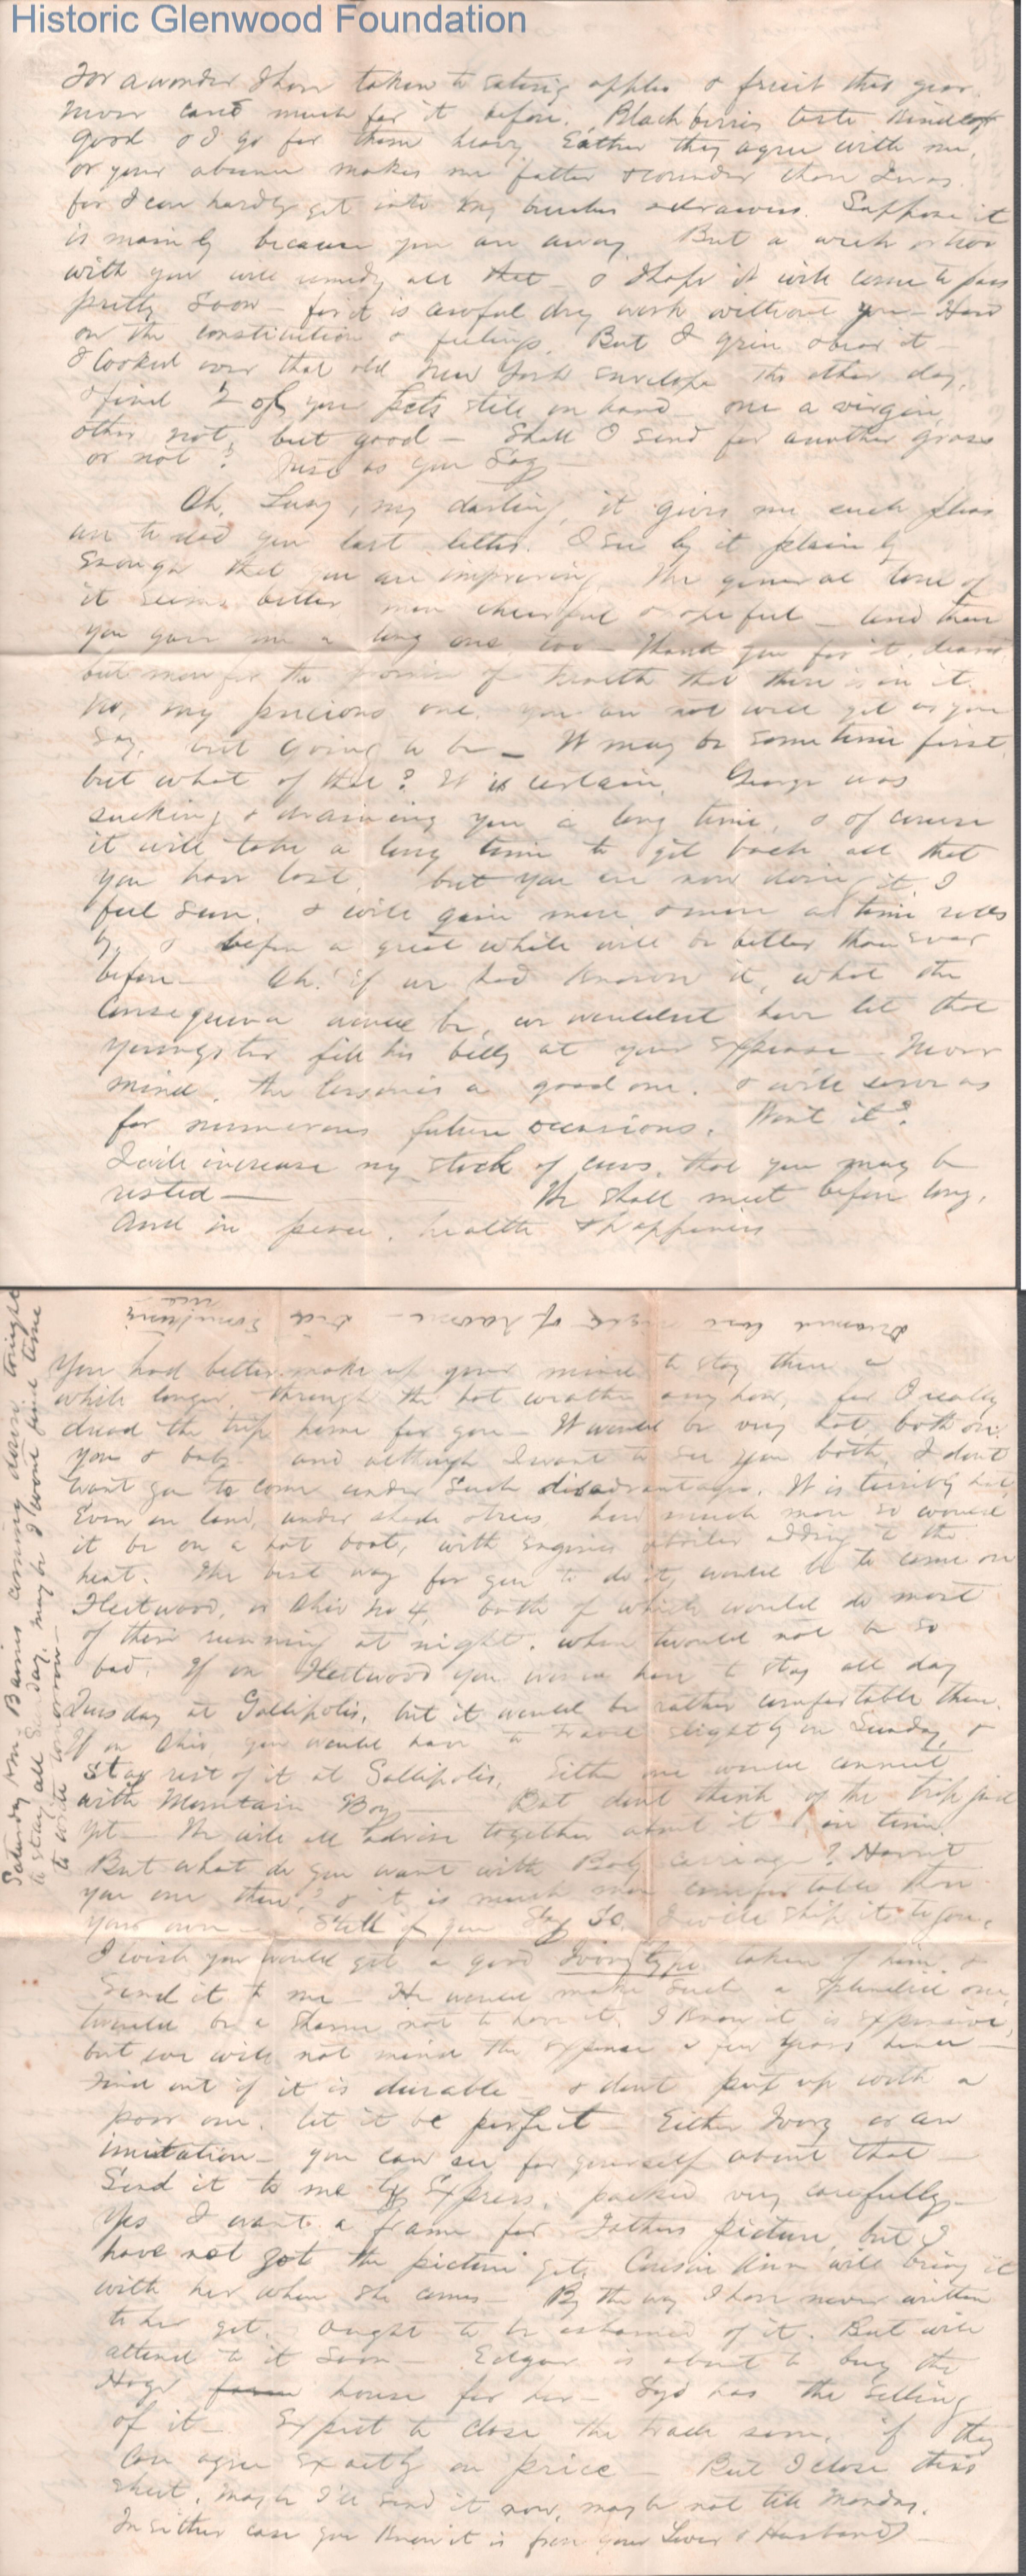 Historic Glenwood Foundation
For a wonder I have taken to eating apples & fruit this year.
Never cared much for it before. Blackberries taste kind of
good & I go for them heavy. Either they agree with me,
or your absence makes me fatter & rounder than I was.
for I can hardly get into my breeches & drawers. Suppose it
is mainly because you are away. But a week or two
with you will remedy all that - & I hope it will come to pass
pretty soon - for it is awful dry work without you - Hard
on the constitution & feelings. But I grin & bear it -
I looked over that old New York envelope the other day,
& find 2 of your still on hand - one a virgin,
other not, but good - Shall I send for another gross
or not? Just as you say -
Oh, Lucy, my darling, it gives me such pleas
ure to read your last letter. I see by it plainly
enough that you are improving. The general tone of
it seems better more cheerful & hopeful - and then
you gave me a long one, too - Thank you for it, dearest
but more for the promise of health that there is in it.
No, my precious one, you are not well yet as you
say, but going to be - It may be some time first,
but what of that? It is certain. George was
sucking & draining you a long time, & of course
it will take a long time to get back all that
you have lost, but you are now doing it, I
feel sure. & will gain more & more as time rolls
by & before a great while will be better than ever
before - Oh! if we had known it, what the
consequence would be, we wouldnt have let that
youngster fill his belly at your expense. Never
mind, the lesson is a good one, & will serve us
for numerous future occasions. Wont it?
I will increase my stock of cows, that you may be
rested - We shall meet before long,
And in peace, health & happiness
Dreamed last night of - Did Sometime
You had better make up your mind to stay there a
while longer through the hot weather any how, for I really
dread the trip home for you - It would be very hot, both on
you & baby and although I want to see you both, I dont
want you to come under such disadvantages. It is terribly hot,
Even on land, under shade trees, how much more so would
it be on a hot boat, with engines & boiler adding to the
heat. The best way for you to do it, would be to come on
Fleetwood, or Ohio No 4, both of which would do most
of their running at night, when twould not be so
bad. If on Fleetwood you would have to stay all day
Tuesday at Gallipolis, but it would be rather comfortable there.
If on Ohio, you would have to travel slightly on Sunday, &
stay rest of it at Gallipolis. Either one would connect
with Mountain Boy - But dont think of the trip just
yet - We will all advise together about it in time.
But what do you want with Baby Carriage? Havent
you one there? & it is much more comfortable than
your own - Still if you say so, I will ship it to you.
I wish you would get a good Ivorytype taken of him &
Send it to me - He would make such a splendid one,
twould be a shame not to have it. I know it is expensive,
but we will not mind the expense a few years hence -
Find out if it is durable - & dont put up with a
poor one, let it be perfect - Either Ivory or an
imitation - you can see for yourself about that -
Send it to me by Express, packed very carefully -
Yes I want a frame for Fathers picture, but I
have not got the picture yet. Cousin Ann will bring it
with her when she comes - By the way I have never written
to her yet. Ought to be ashamed of it. But will
attend to it soon - Edgar is about to buy the
Hoge farm house for her - Syd has the selling
of it - Expect to close the trade soon, if they
can agree exactly on price - But I close this
sheet, maybe I'll send it now, maybe not till Monday.
In either case you know it is from your Lover & Husband -
Saturday P.M. Bairns coming down tonight
to stay all Sunday, maybe I wont find time
to write tomorrow -